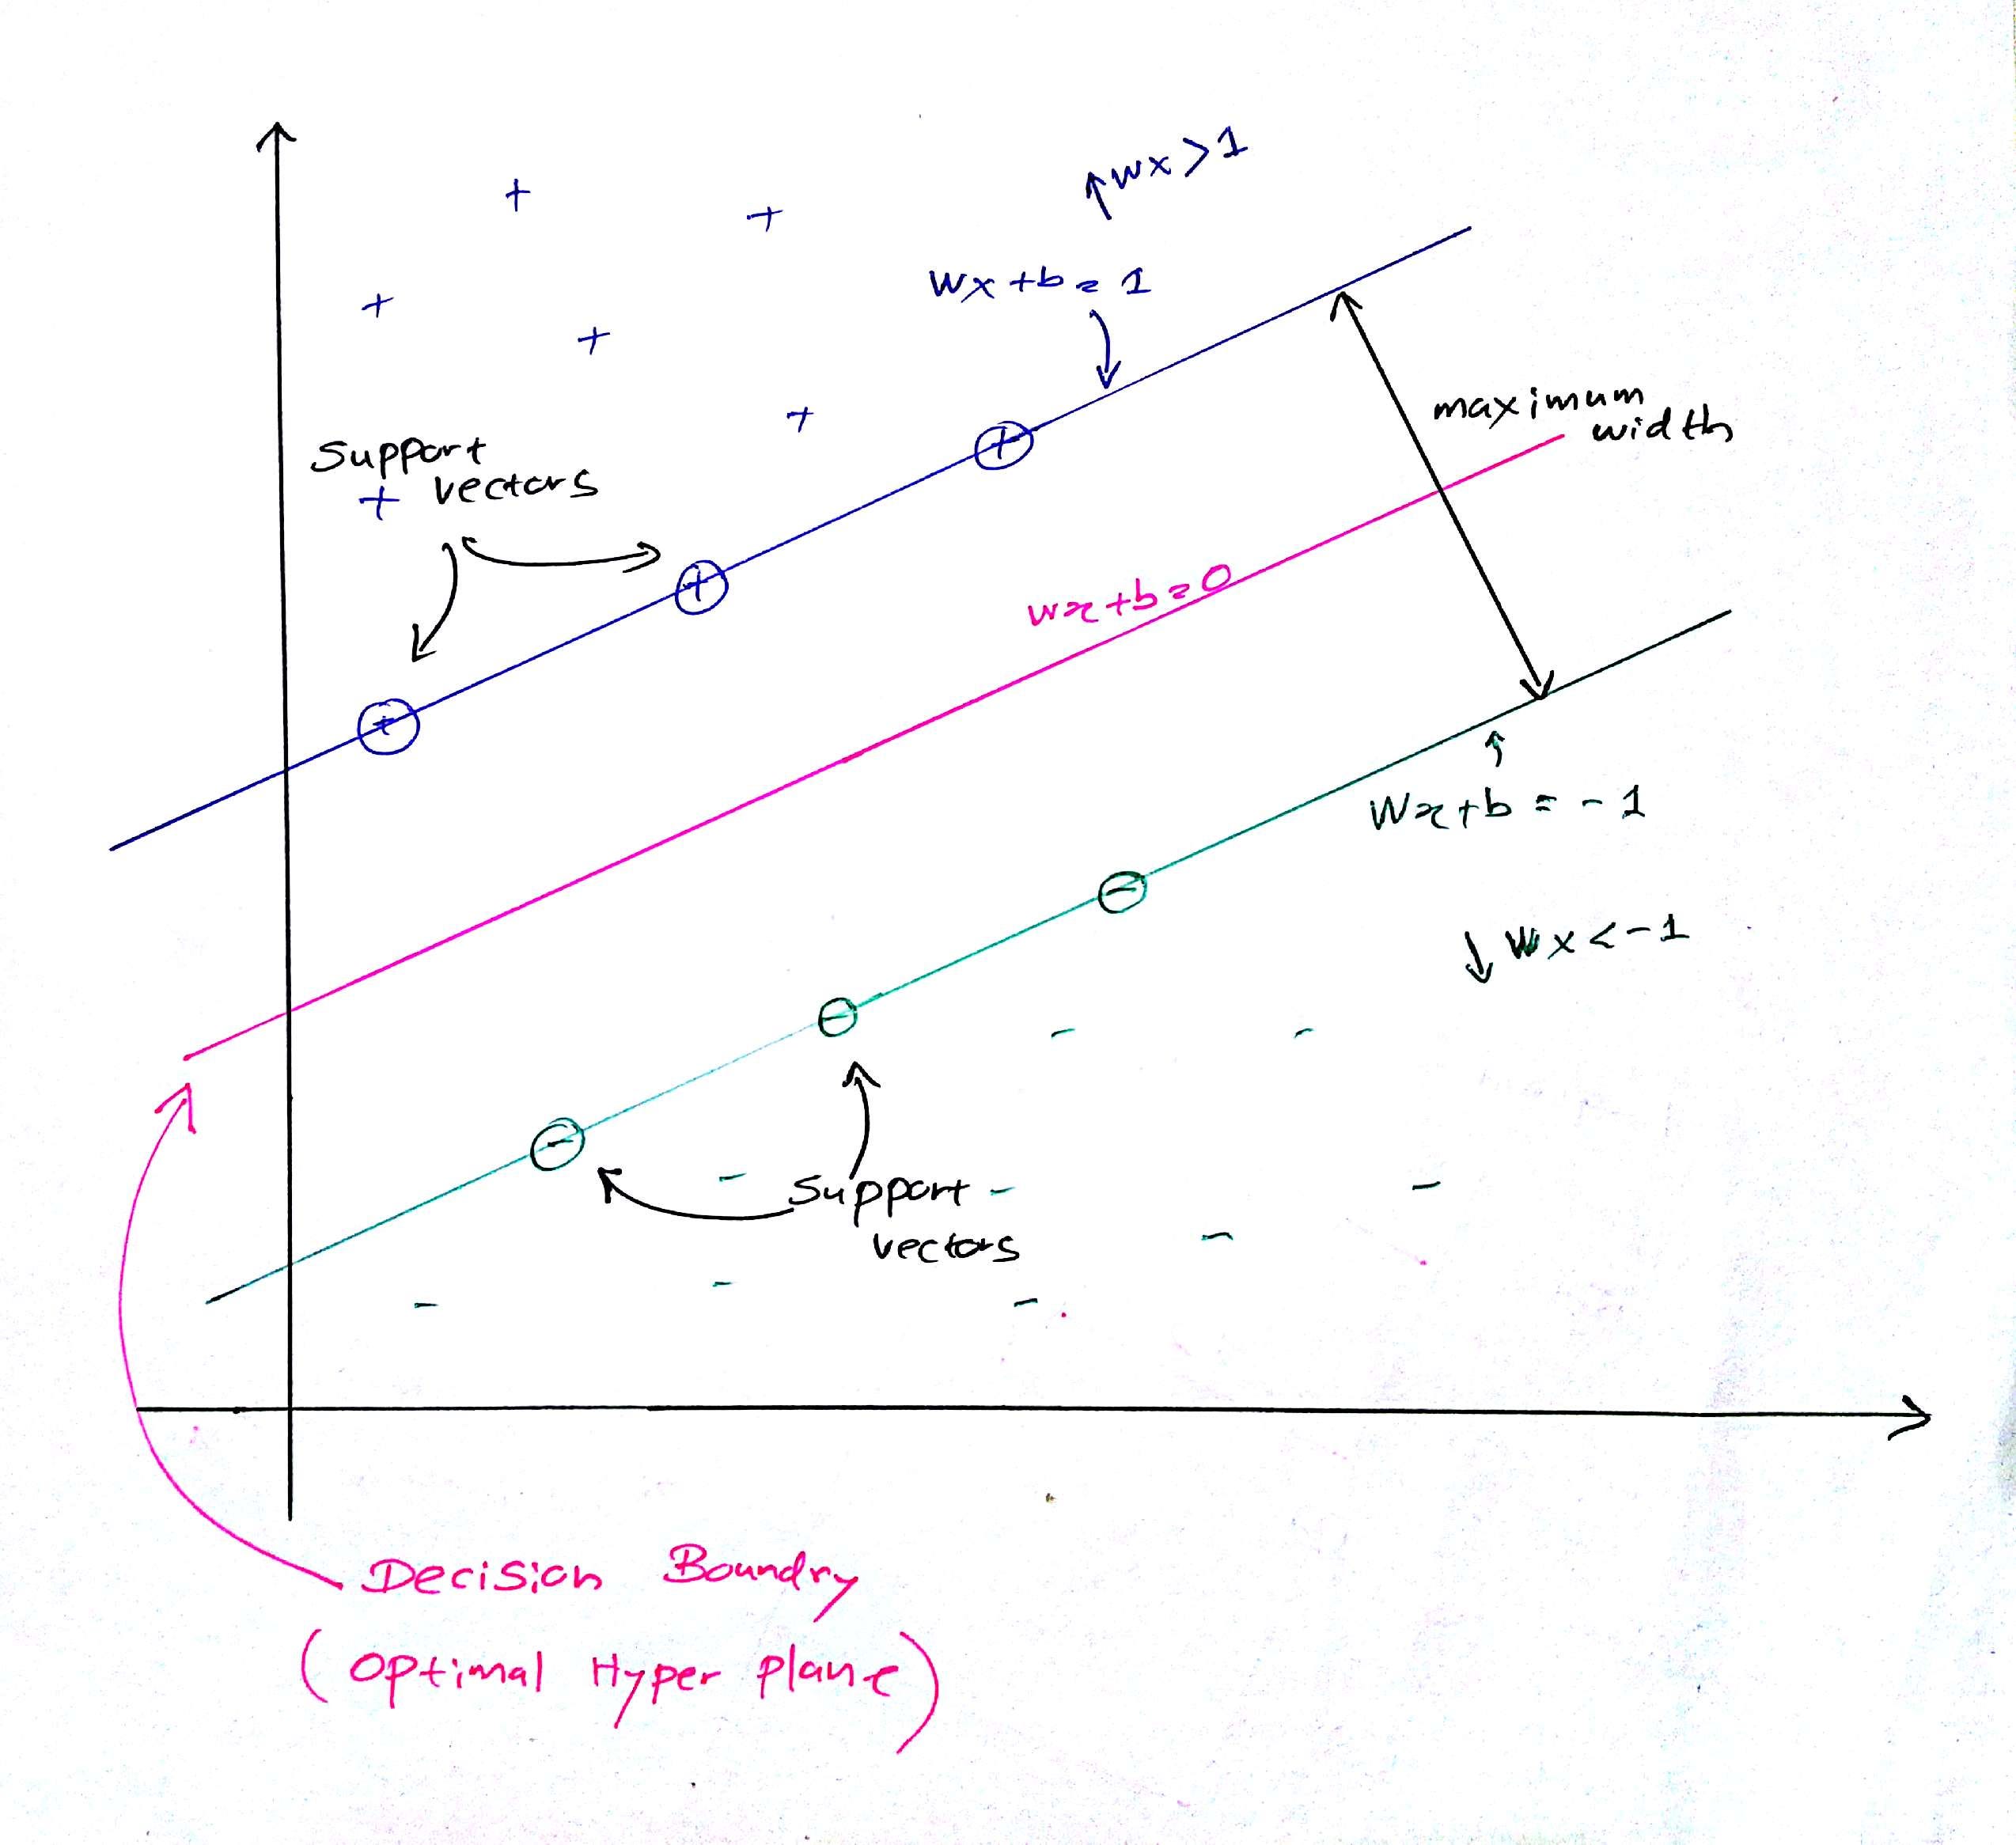 ↑wx>1
wx+b=1
maximum
width
Support
vectors
wx+b=0
wx+b=-1
↓wx<-1
Support
vectors
Decision Boundry
(Optimal Hyper plane)